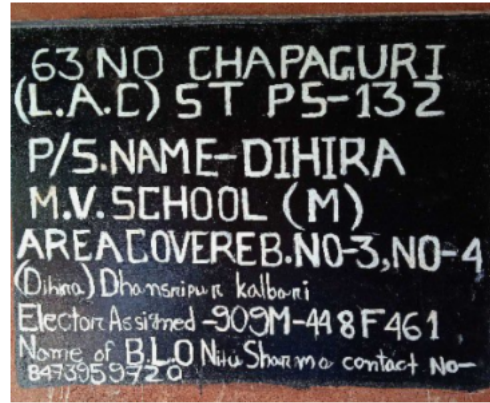 63 NO CHAPAGURI
(L.A.C) ST PS-132
P/S.NAME-DIHIRA
M.V.SCHOOL (M)
AREA COVEREB.NO-3,NO-4
(Dihira) Dhansripur kalbari
Elector Assigned -909M-448F461
Name of B.L.O Nitu Sharma contact No-
8473959720